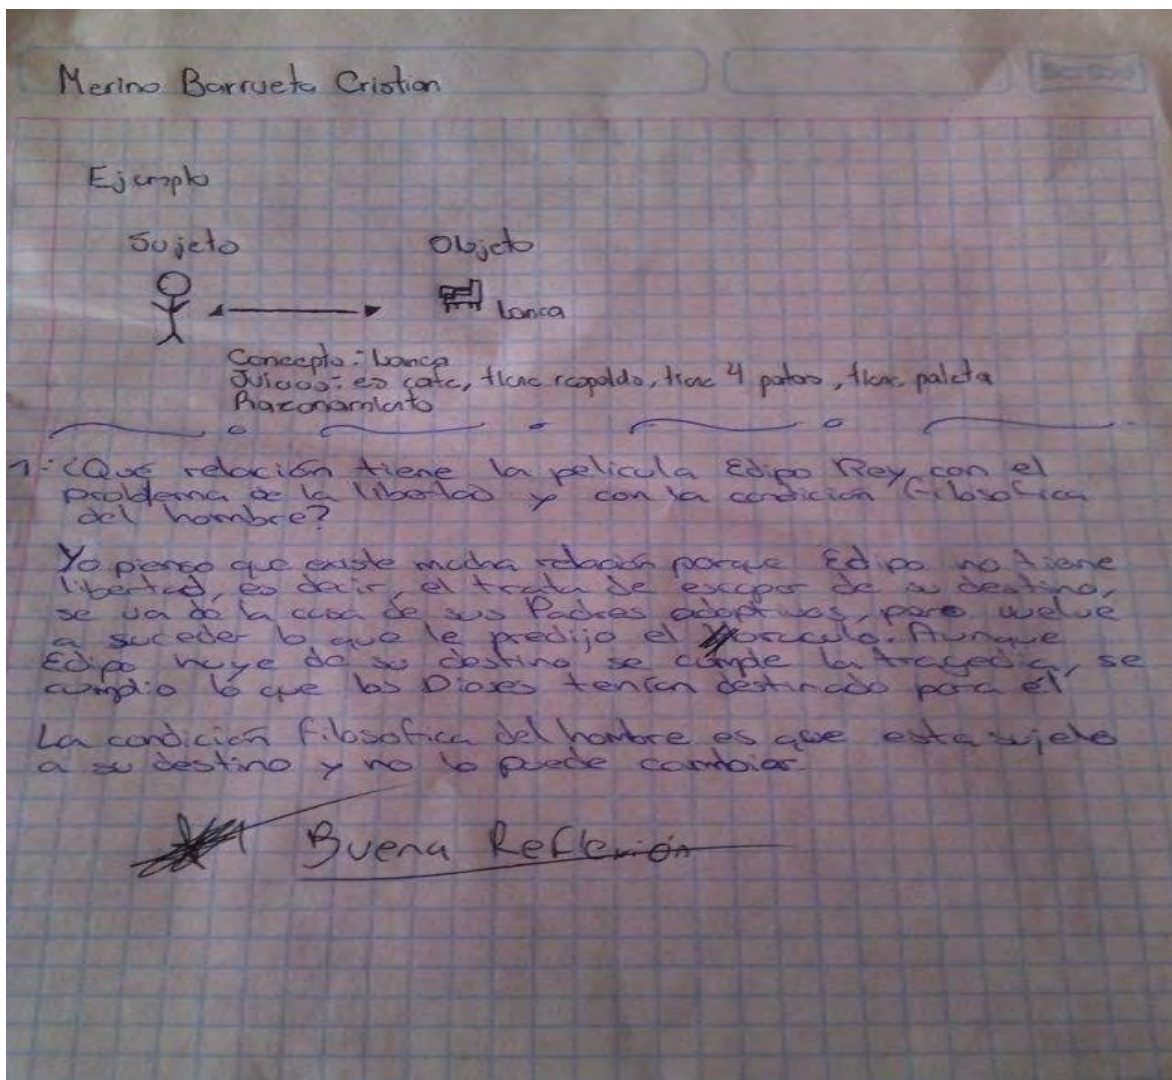 Merino Barrueto Cristian
Ejemplo
Sujeto Objeto
banca
Concepto: banca
Juicios: es café, tiene respaldo, tiene 4 patas, tiene paleta
Razonamiento
1-¿Que relación tiene la pelicula Edipo Rey con el
problema de la libertad y con la condición filosofica
del hombre?
Yo pienso que existe mucha relación porque Edipo no tiene
libertad, es decir, el trata de escapar de su destino,
se va de la casa de sus Padres adoptivos, pero vuelve
a suceder lo que le predijo el oraculo. Aunque
Edipo huye de su destino se cumple la tragedia, se
cumplio lo que los Dioses tenían destinado para él
La condición filosofica del hombre es que esta sujeto
a su destino y no lo puede cambiar.
Buena Reflexión